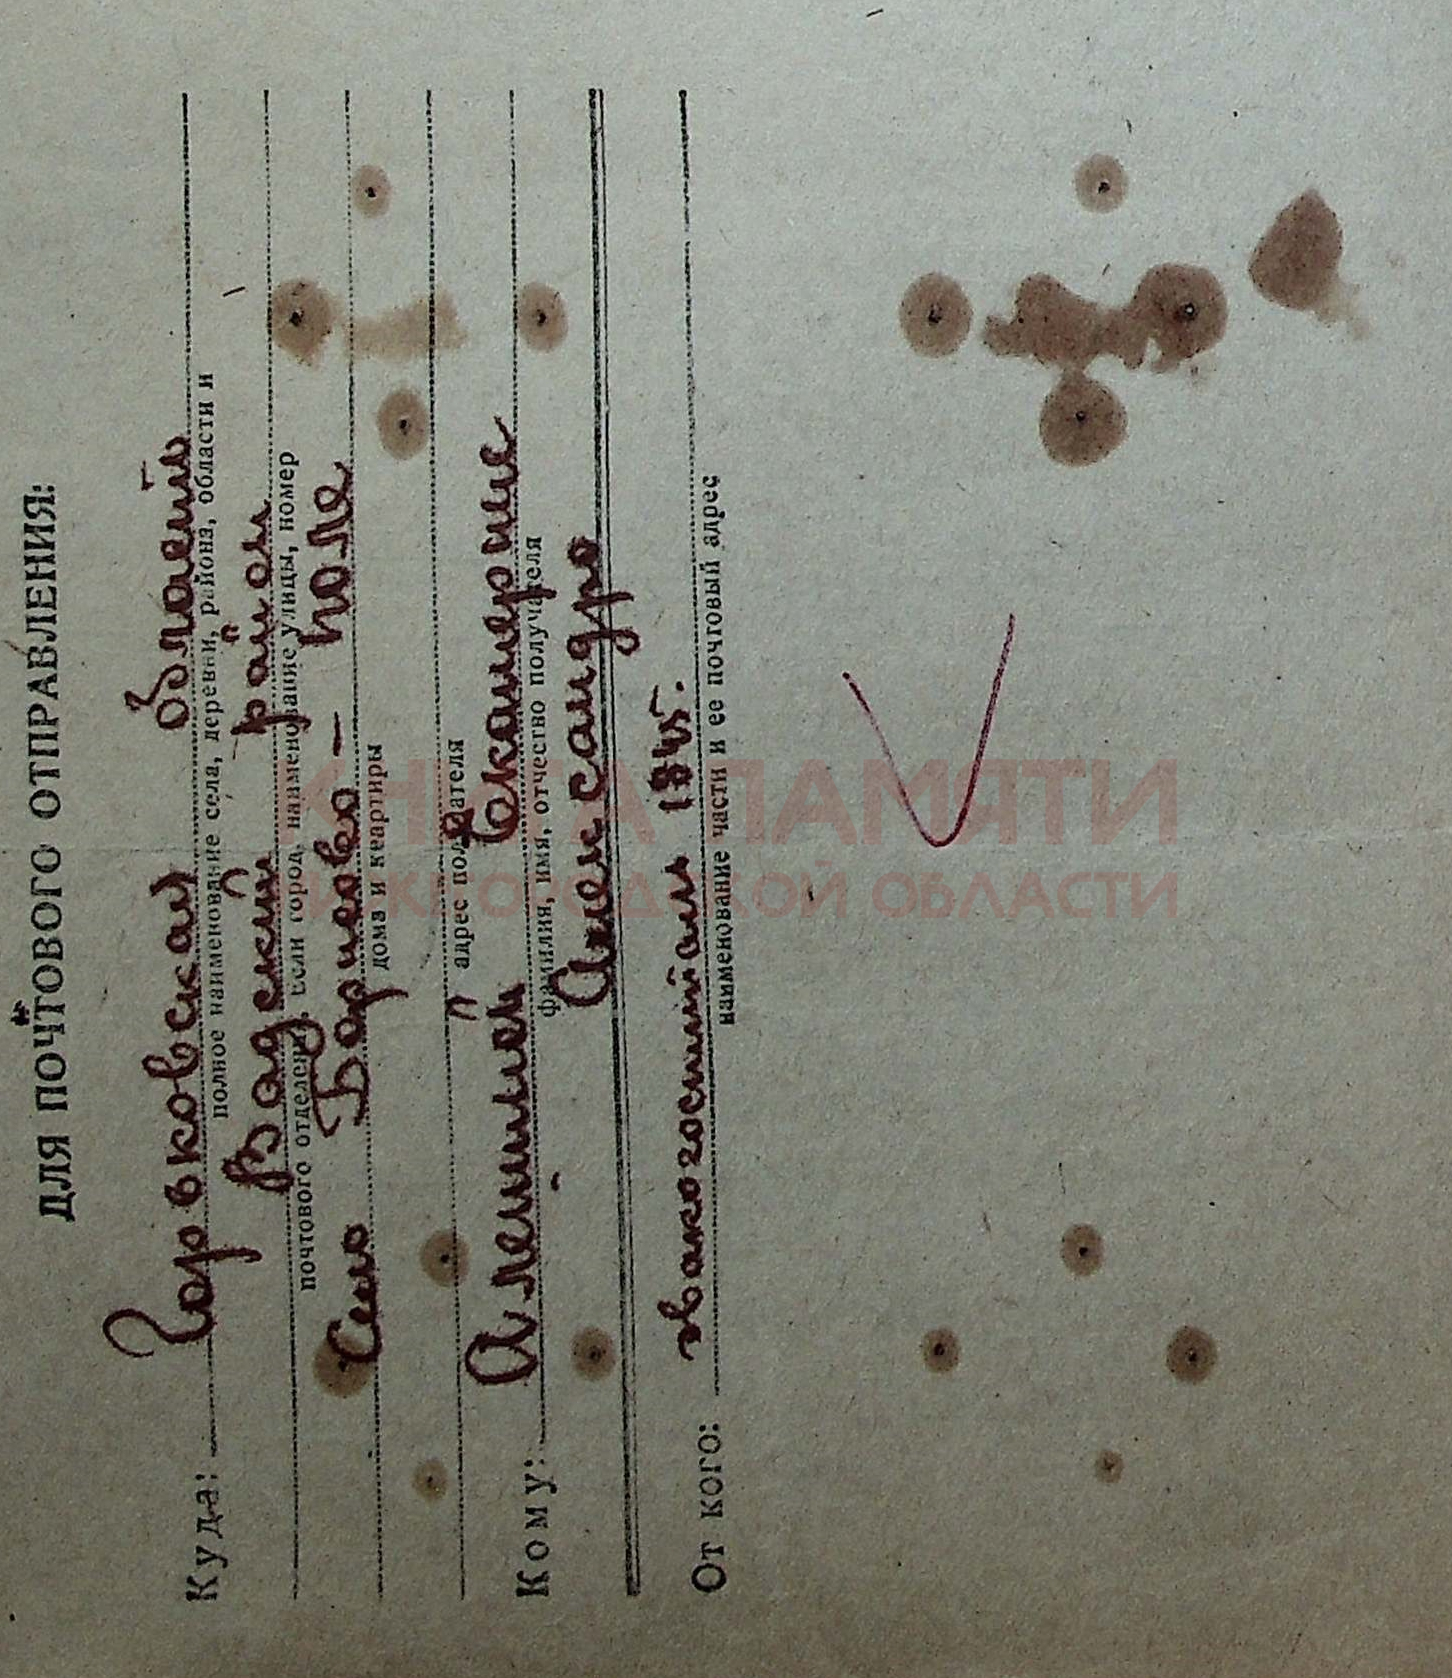 ДЛЯ ПОЧТОВОГО ОТПРАВЛЕНИЯ:
Куда: Горьковская область
полное наименование села, деревни, района, области и
Вадский район
почтового отделения, если город, наименование улицы, номер
Село Борцово-поле
дома и квартиры
адрес подателя
Кому: Алешиной Екатерине
фамилия, имя, отчество получателя
Александро
От кого: эвакогоспиталь 1845.
наименование части и ее почтовый адрес
КНИГА ПАМЯТИ
НИЖЕГОРОДСКОЙ ОБЛАСТИ